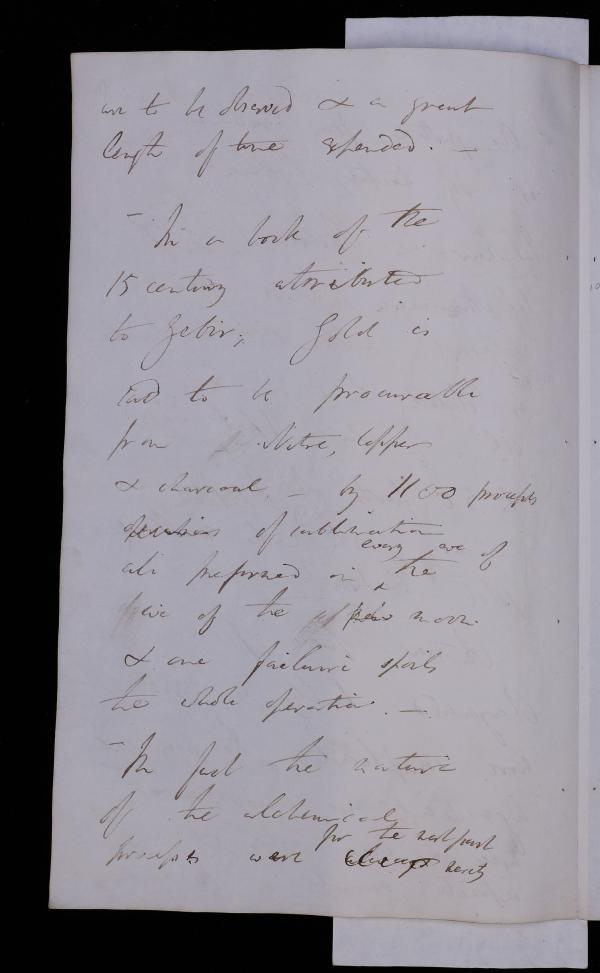 are to be observed & a great
length of time expended. —
— In a book of the
15 century attributed
to Gebir; Gold is
said to be procurable
from Nitre, Copper
& charcoal — by 1100 process
of sublimation
all performed in the
every one of
of the new moon
& one failure spoils
the whole operation. —
— In fact the nature
of the alchemical
for the most part
process were always